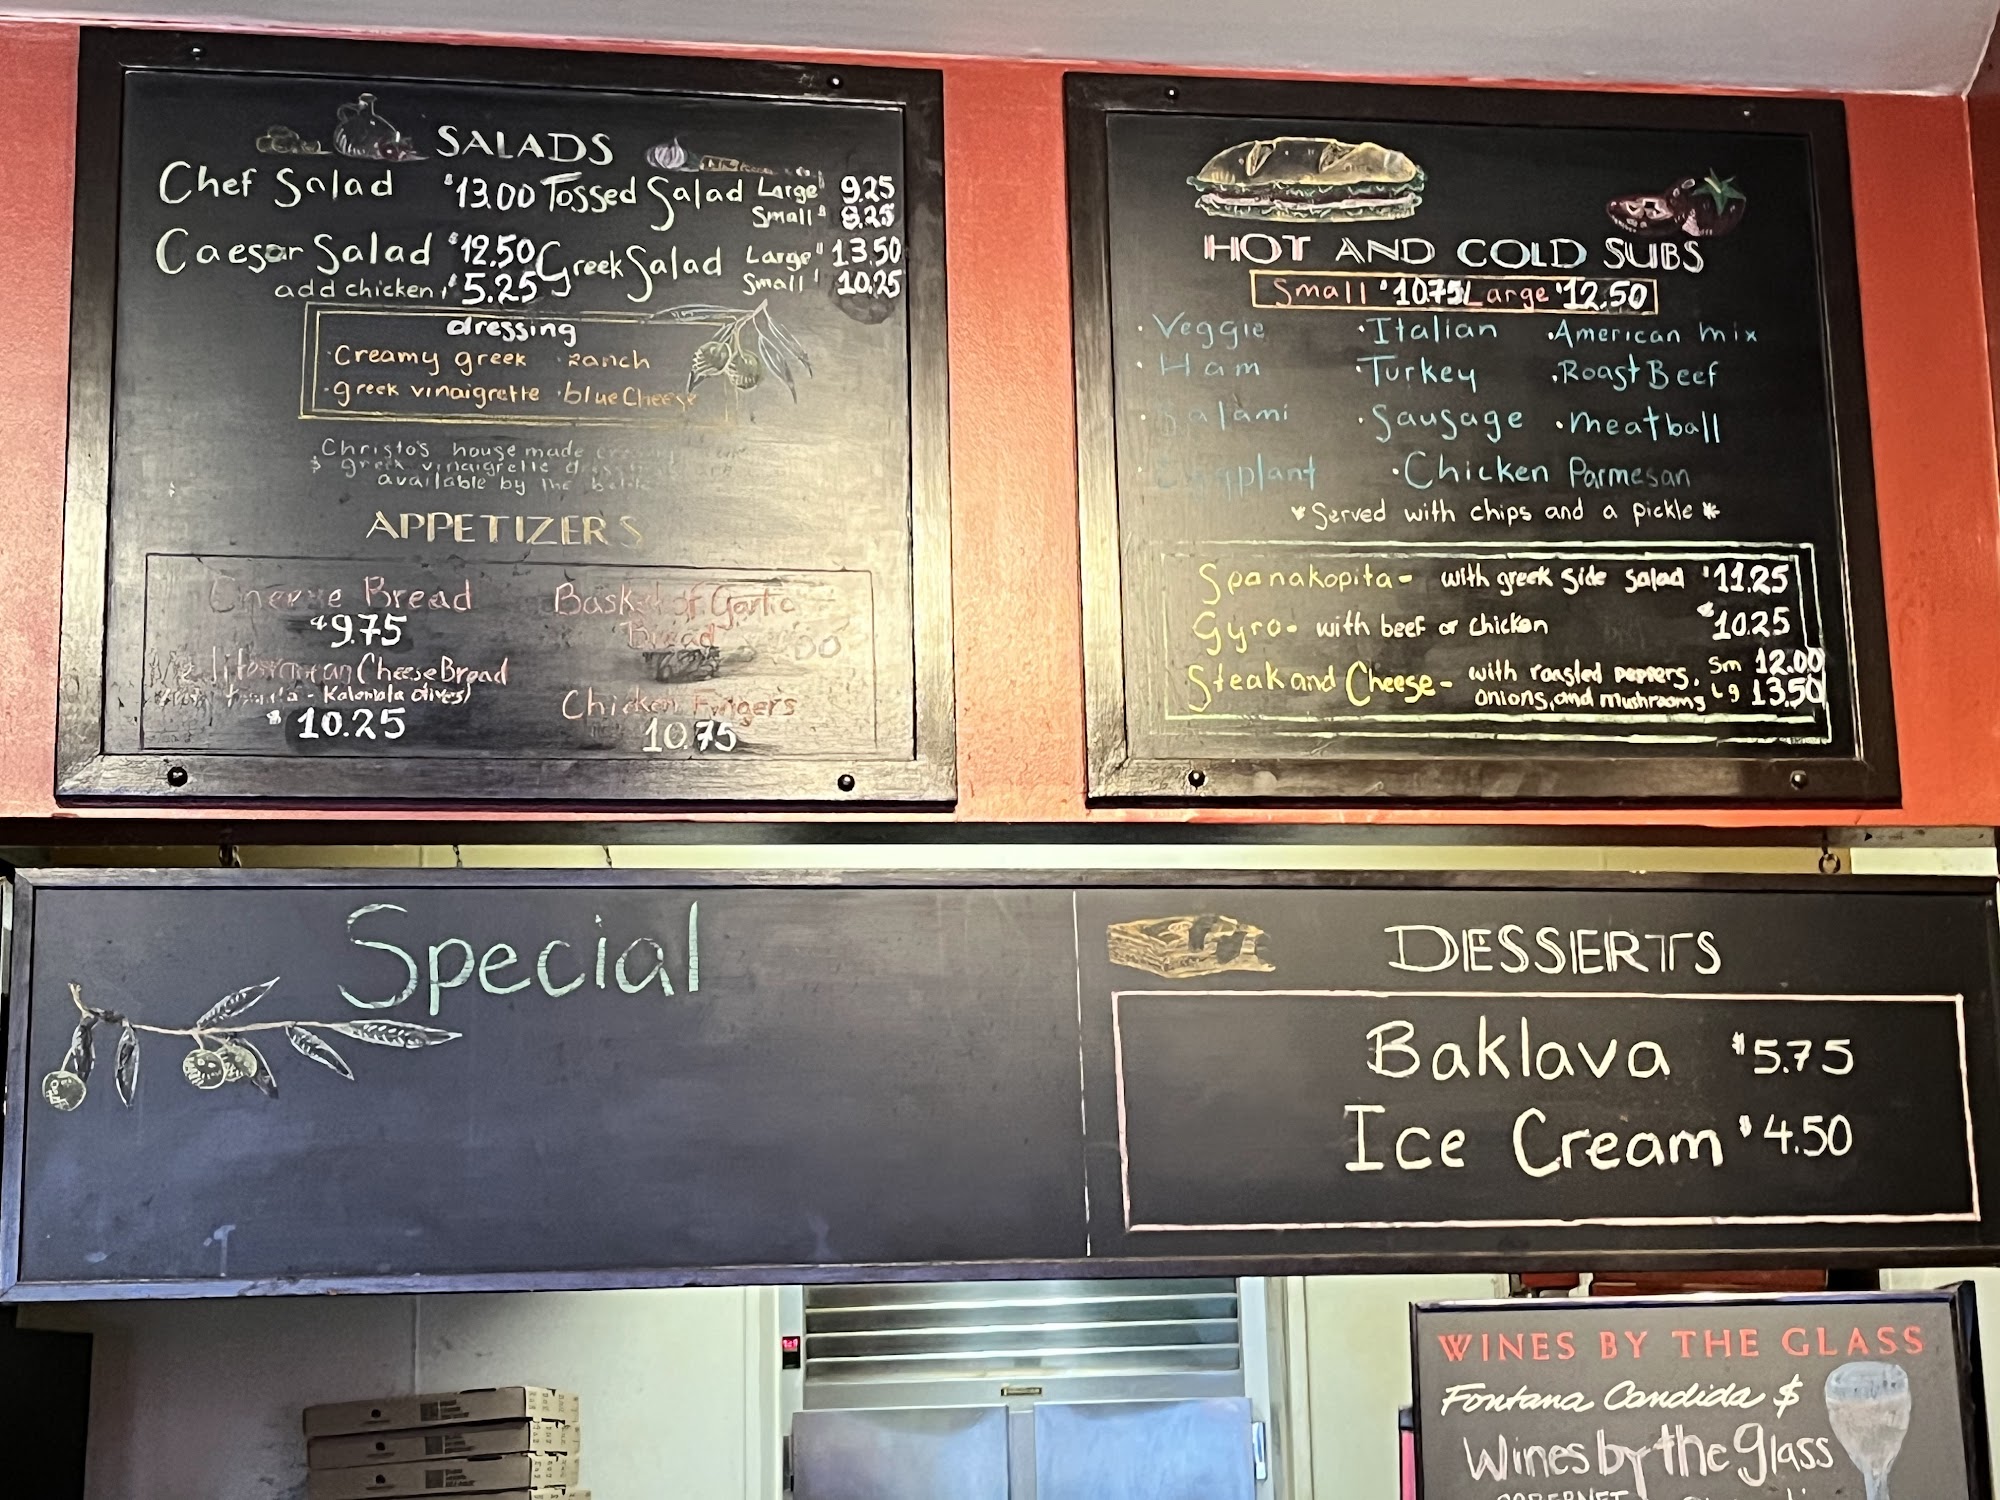 SALADS
Chef Salad $13.00
Caesar Salad $12.50
add chicken $5.25
Tossed Salad Large $9.25
Small $8.25
Greek Salad Large $13.50
Small $10.25
dressing
·Creamy greek ·ranch
·greek vinaigrette ·blue Cheese
Christo's house made
& greek vinaigrette
available by the
APPETIZERS
Cheese Bread
$9.75
Mediterranean Cheese Bread
olives)
$10.25
Basket of Garlic
Bread
Chicken Fingers
10.75
HOT AND COLD SUBS
Small $10.75 Large $12.50
·Veggie ·Italian ·American mix
·Ham ·Turkey ·Roast Beef
·Salami ·Sausage ·meatball
·Eggplant ·Chicken Parmesan
*Served with chips and a pickle*
Spanakopita- with greek side salad $11.25
Gyro- with beef or chicken $10.25
Steak and Cheese- with roasted peppers, Sm 12.00
onions, and mushrooms Lg 13.50
Special
DESSERTS
Baklava $5.75
Ice Cream $4.50
WINES BY THE GLASS
Fontana Candida $
Wines by the glass